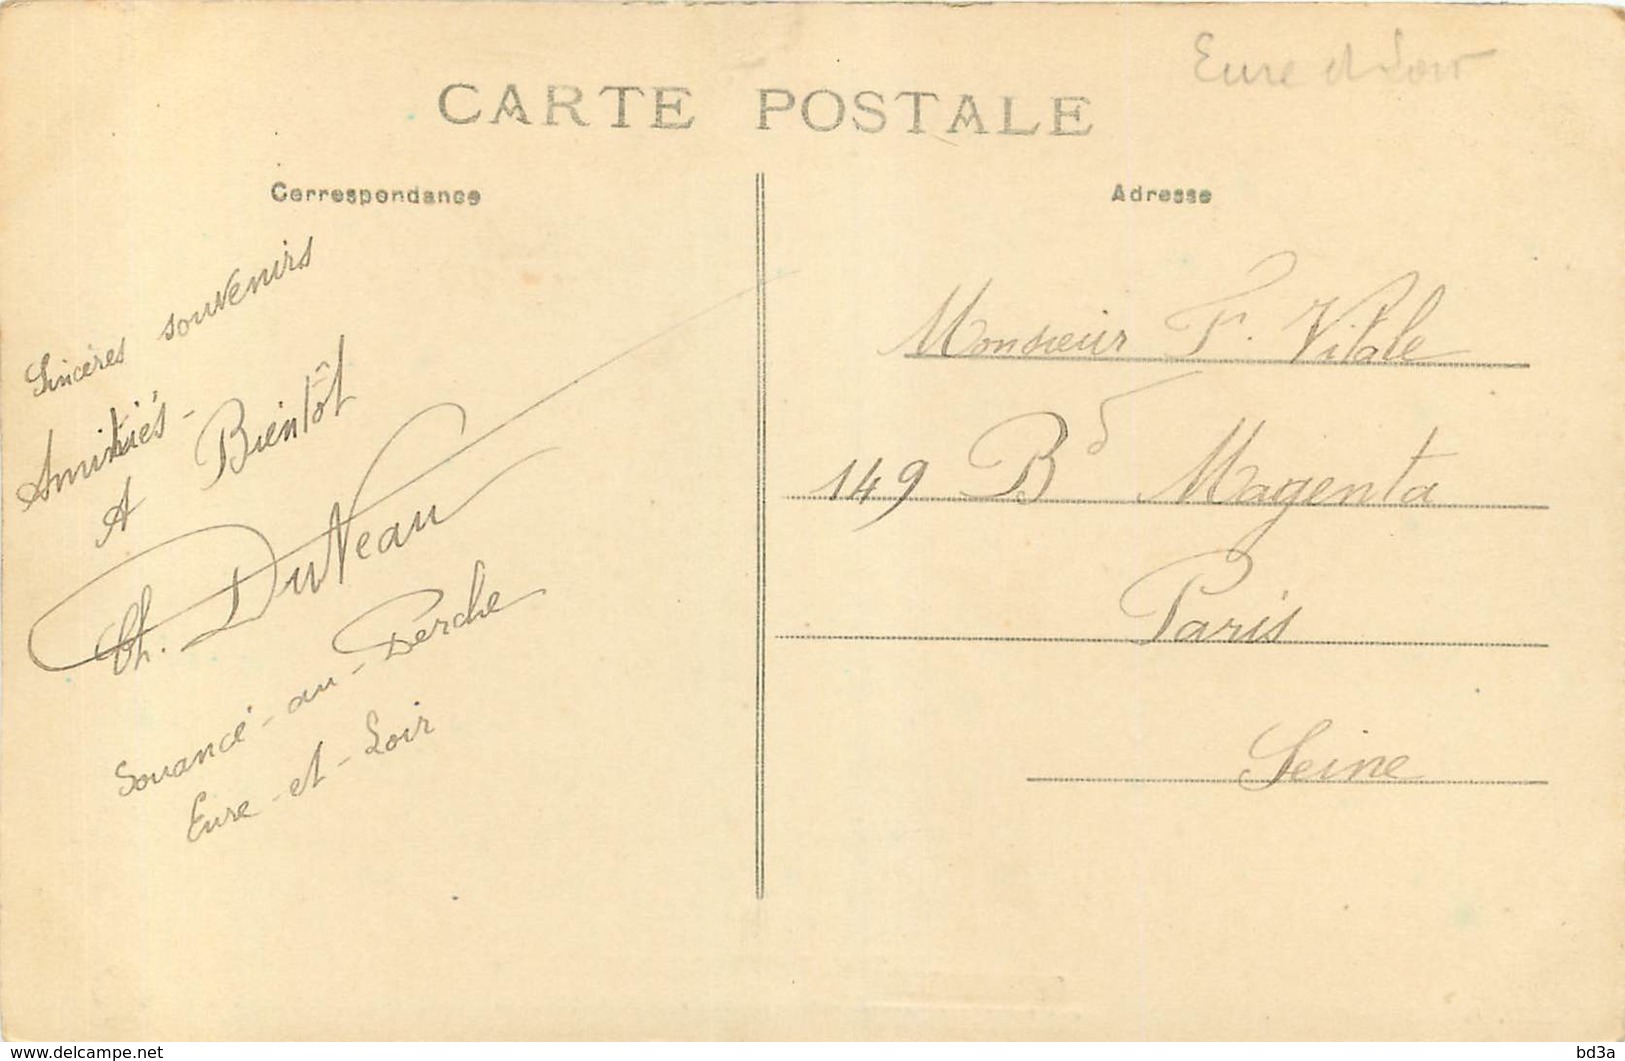 Eure et Loir
CARTE POSTALE
Correspondance
Adresse
Sincères souvenirs
Amitiés -
A Bientôt
Ch. DuVeau
Souancé - au - Perche
Eure - et - Loir
Monsieur F. Vitale
149 Bd Magenta
Paris
Seine
www.delcampe.net
bd3a